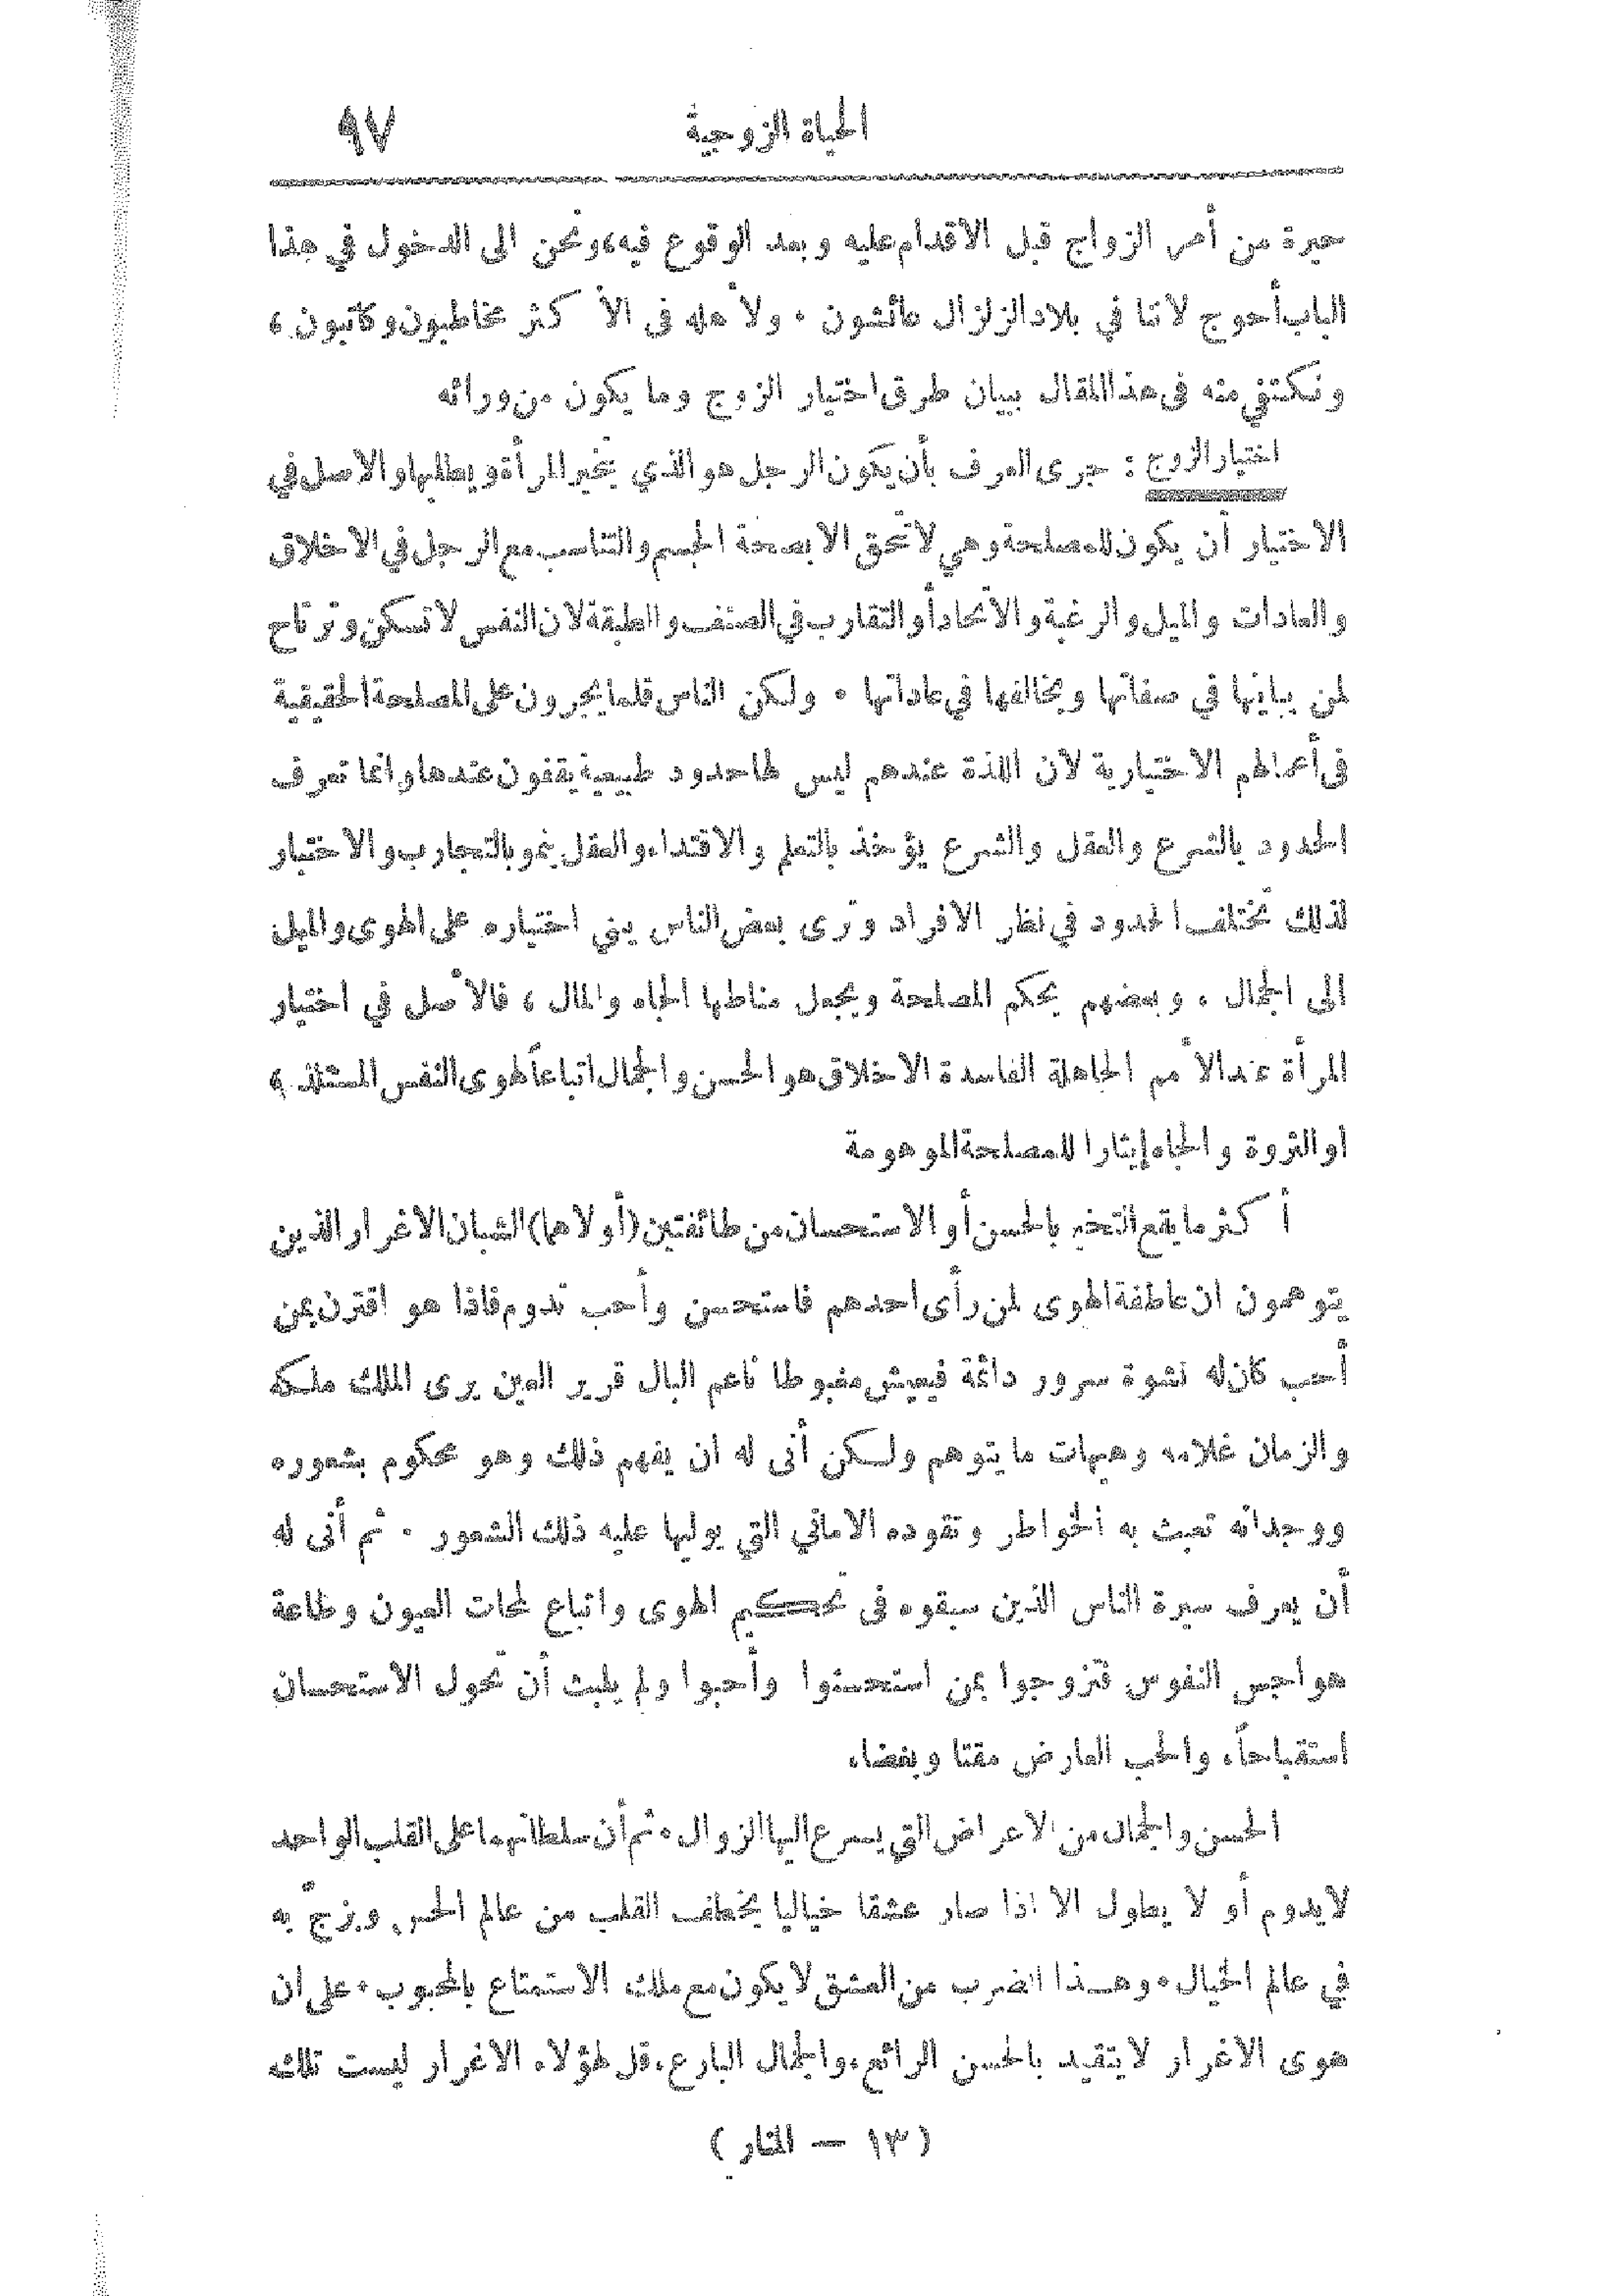 الحياة الزوجية ٩٧
حيرة من أمر الزواج قبل الاقدام عليه وبعد الوقوع فيه، ونحن الى الدخول في هذا
الباب أحوج لاننا في بلاد الزلزال عائشون ٠ ولأهله في الأكثر مخاطبون وكاتبون ،
ونكتفي منه في هذا المقال ببيان طرق اختيار الزوج وما يكون من ورائه
اختيار الزوج : جرى العرف بأن يكون الرجل هو الذي يتخير المرأة ويطلبها والاصل في
الاختيار أن يكون للمصلحة وهي لا تتحقق الا بصحة الجسم والتناسب مع الرجل في الاخلاق
والعادات والميل والرغبة والاتحاد أو التقارب في الصنف والطبقة لان النفس لا تسكن وترتاح
لمن يباينها في صفاتها ويخالفها في عاداتها ٠ ولكن الناس قلما يجرون على المصلحة الحقيقية
في أعمالهم الاختيارية لان اللذة عندهم ليس لها حدود طبيعية يقفون عندها وانما تعرف
الحدود بالشرع والعقل والشرع يؤخذ بالتعلم والاقتداء والعقل ينمو بالتجارب والاختبار
لذلك تختلف الحدود في نظر الافراد وترى بعض الناس يبني اختياره على الهوى والميل
الى الجمال ، وبعضهم يحكم المصلحة ويجعل مناطها الجاه والمال ، فالأصل في اختيار
المرأة عند الأمم الجاهلة الفاسدة الاخلاق هو الحسن والجمال اتباعاً لهوى النفس المستلذ ،
او الثروة والجاه إيثارا للمصلحة الموهومة
أكثر ما يقع التخير بالحسن أو الاستحسان من طائفتين (أولاها) الشبان الاغرار الذين
يتوهمون ان عاطفة الهوى لمن رأى احدهم فاستحسن وأحب تدوم فاذا هو اقترن بمن
أحب كان له نشوة سرور دائمة فيعيش مغبوطا ناعم البال قرير العين يرى الملك ملكه
والزمان غلامه وهيهات ما يتوهم ولكن أنى له ان يفهم ذلك وهو محكوم بشعوره
ووجدانه تعبث به الخواطر وتقوده الاماني التي يوليها عليه ذلك الشعور ٠ ثم أنى له
أن يعرف سيرة الناس الذين سبقوه في تحكيم الهوى واتباع لمحات العيون وطاعة
هواجس النفوس فتزوجوا بمن استحسنوا وأحبوا ولم يلبث أن تحول الاستحسان
استقباحاً، والحب العارض مقتا وبغضاء
الحسن والجمال من الاعراض التي يسرع اليها الزوال ٠ ثم أن سلطانهما على القلب الواحد
لا يدوم أو لا يطول الا اذا صار عشقا خياليا يخطف القلب من عالم الحس ويزجّ به
في عالم الخيال ٠ وهذا الضرب من العشق لا يكون مع ملك الاستمتاع بالمحبوب ٠ على ان
هوى الاغرار لا يتقيد بالحسن الرائع، والجمال البارع، قل لهؤلاء الاغرار ليست تلك
(١٣ — المنار)